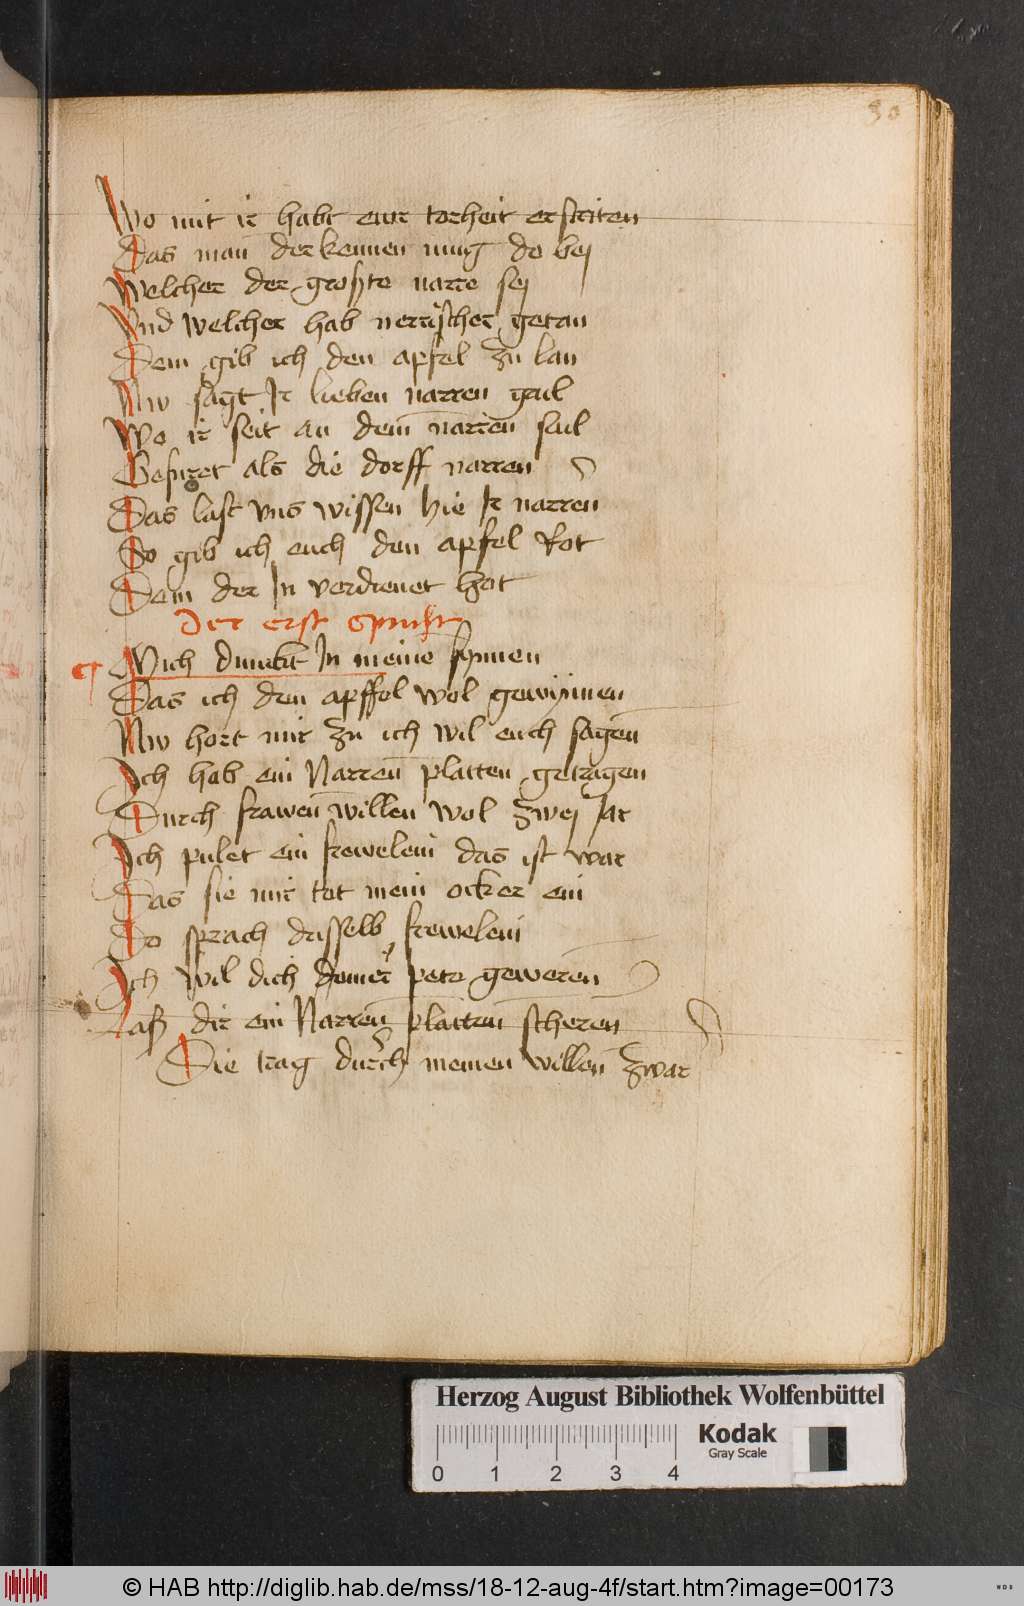 80
Wo mit ir habt ewr torheit erstriten
Das man derkennen mug do bej
Welcher der groste narre sej
Vnd welcher hab nerrischer getan
Dem gib ich den apfel zu lan
Nw sagt Ir lieben narren gail
Wo ir seit an dem narren sail
Gefuret als die dorff narren
Das last vns wissen hie Ir narren
So gib ich euch den apfel Rot
Dem der In verdienet hot
Der erst spricht
Mich dunckt In meine synnen
Das ich den apffel wol gewynnen
Nw hort mir zu ich wil euch sagen
Ich hab ein Narren platten getragen
Durch frawen willen wol zwej Jar
Ich pulet ein frewelein das ist war
Das sie mir tet mein ocker ein
Do sprach dasselb frewelein
Ich wil dich deiner pete geweren
Laß dir ein Narren platten scheren
Die trag durch meinen willen zwar
Herzog August Bibliothek Wolfenbüttel
Kodak
Gray Scale
0 1 2 3 4
© HAB http://diglib.hab.de/mss/18-12-aug-4f/start.htm?image=00173